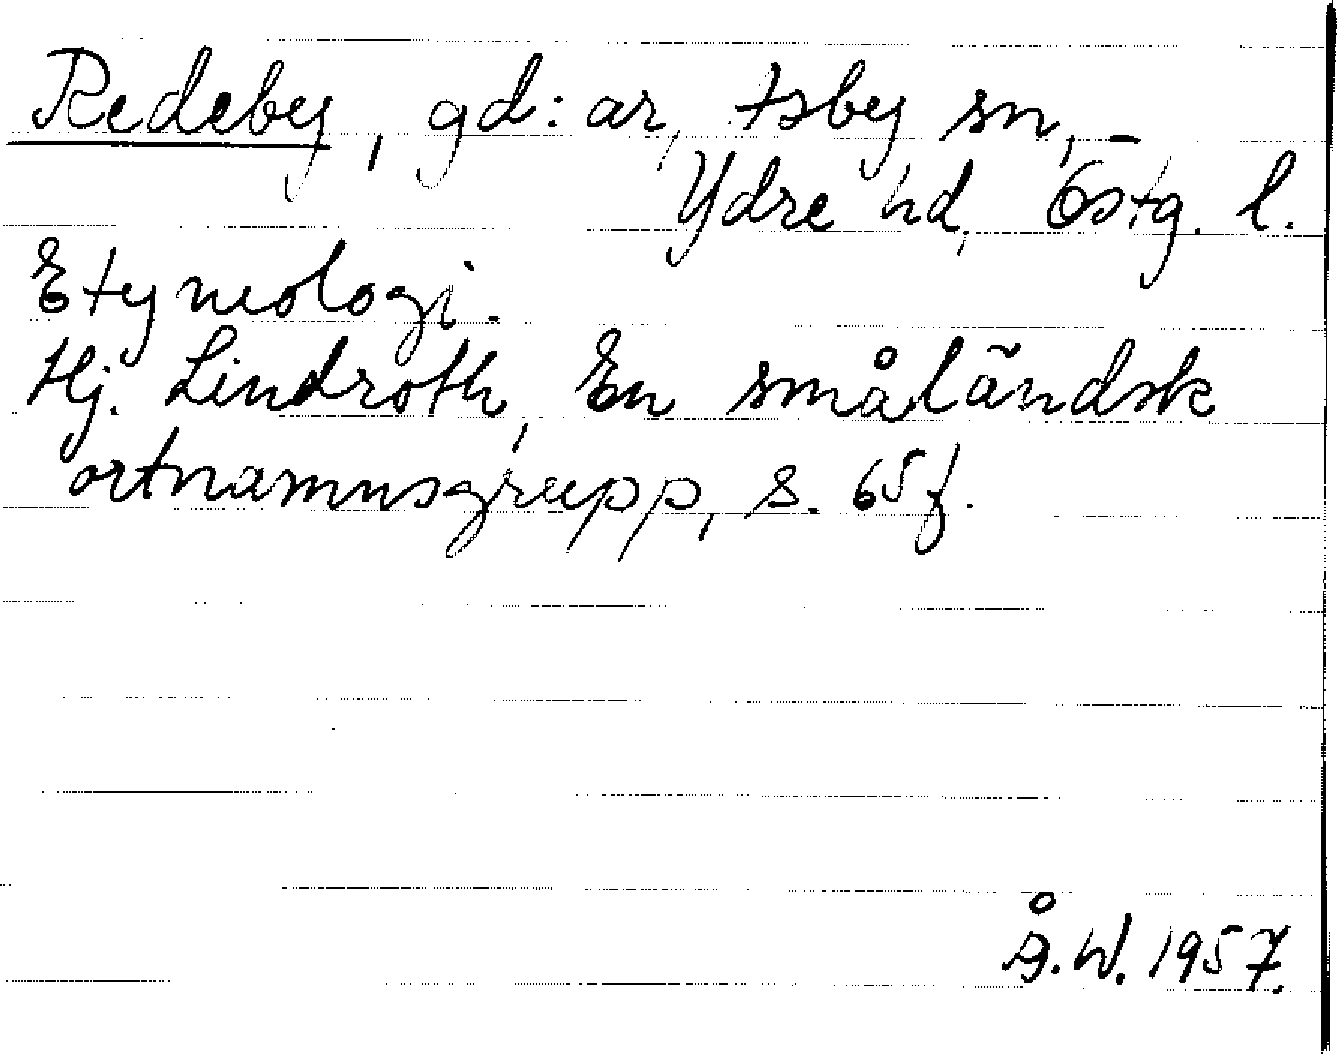 Redeby, gd:ar, Asby sn,
Ydre hd, Östg. l.
Etymologi.
Hj. Lindroth, En småländsk
ortnamnsgrupp, s. 65 f.
Å.W. 1957.